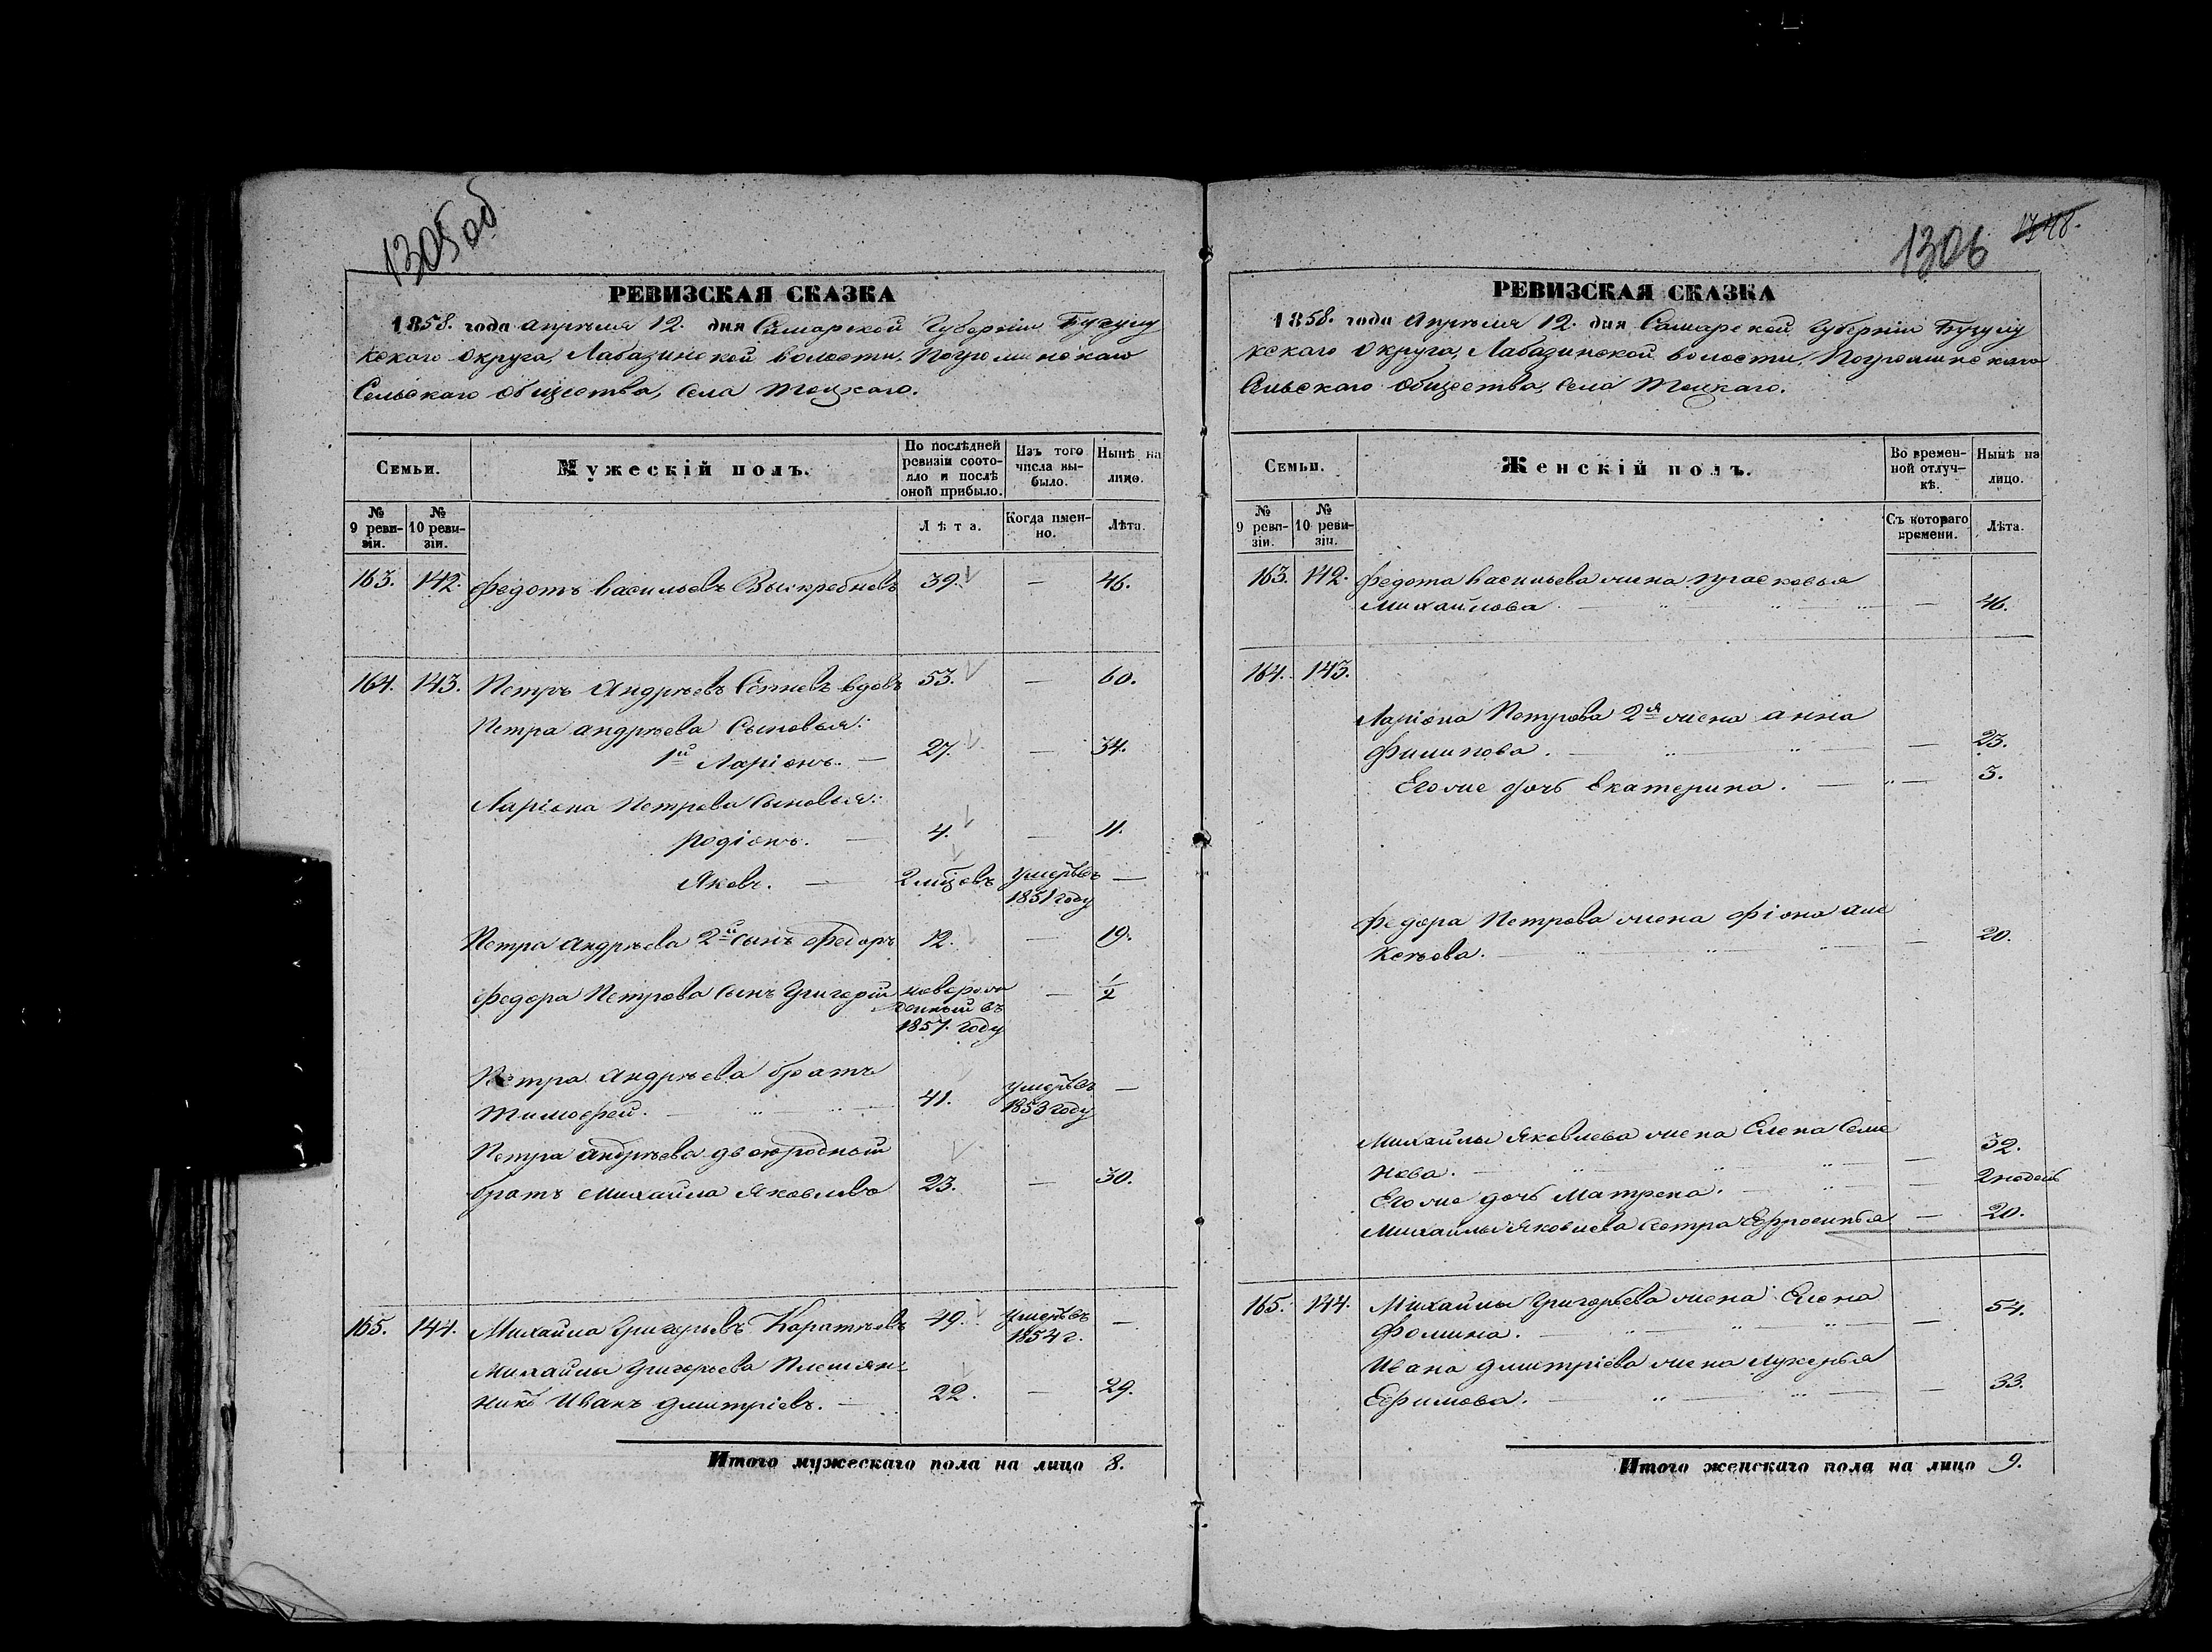 1305об
РЕВИЗСКАЯ СКАЗКА
1858. года Апрѣля 12. дня Самарской Губерніи Бузулу
кскаго Округа, Лабазинской волости, Погроминскаго
Сельскаго общества, Села Тоцкаго.
Семьи.
Мужескій полъ.
По послѣдней ревизіи состо-
яло и послѣ оной прибыло.
Изъ того числа вы-
было.
Нынѣ на лицо.
№ 9 реви-
зіи.
№ 10 реви-
зіи.
Лѣта.
Когда имен-
но.
Лѣта.
163. 142. Федотъ Васильевъ Выскребневъ 39. — 46.
164. 143. Петръ Андрѣевъ вдовъ 53. — 60.
Петра Андрѣева Сыновья:
1й Ларіонъ. — 27. — 34.
Ларіона Петрова Сыновья:
Родіонъ. — 4. — 11.
Яковъ. — 2 мцовъ умеръ въ —
1851 году
Петра Андрѣева 2й сынъ Федоръ 12. — 19.
Федора Петрова Сынъ Григорій новорож
денный въ
1857. году — 1/2
Петра Андрѣева братъ
Тимофей. — 41. умеръ въ
1853 году —
Петра Андрѣева двоюродный
братъ Михайла Яковлевъ 23. — 30.
165. 144. Михайла Григорьевъ Каратѣевъ 49. умеръ въ
1854 г. —
Михайлы Григорьева Племян-
никъ Иванъ Дмитріевъ. — 22. — 29.
Итого мужескаго пола на лицо 8.
1306
РЕВИЗСКАЯ СКАЗКА
1858. года Апрѣля 12. дня Самарской Губерніи Бузулу
кскаго Округа, Лабазинской волости, Погроминскаго
Сельскаго общества, Села Тоцкаго.
Семьи.
Женскій полъ.
Во времен-
ной отлуч-
кѣ.
Нынѣ на лицо.
№ 9 реви-
зіи.
№ 10 реви-
зіи.
Съ котораго времени.
Лѣта.
163. 142. Федота Васильева жена Прасковья
Михайлова — — 46.
164. 143.
Ларіона Петрова 2я жена Анна
Филипова. — — 23.
Его же дочь Екатерина. — — 3.
Федора Петрова жена Фіона Але
ксѣева. — — 20.
Михайлы Яковлева жена Елена Семе
нова. — — 32.
Его же дочь Матрена. — — 2 недель
Михайлы Яковлева Сестра Ефросинья — 20.
165. 144. Михайлы Григорьева жена Елена
Фомина. — — 54.
Ивана Дмитріева жена Лукерья
Ефимова. — — 33.
Итого женскаго пола на лицо 9.